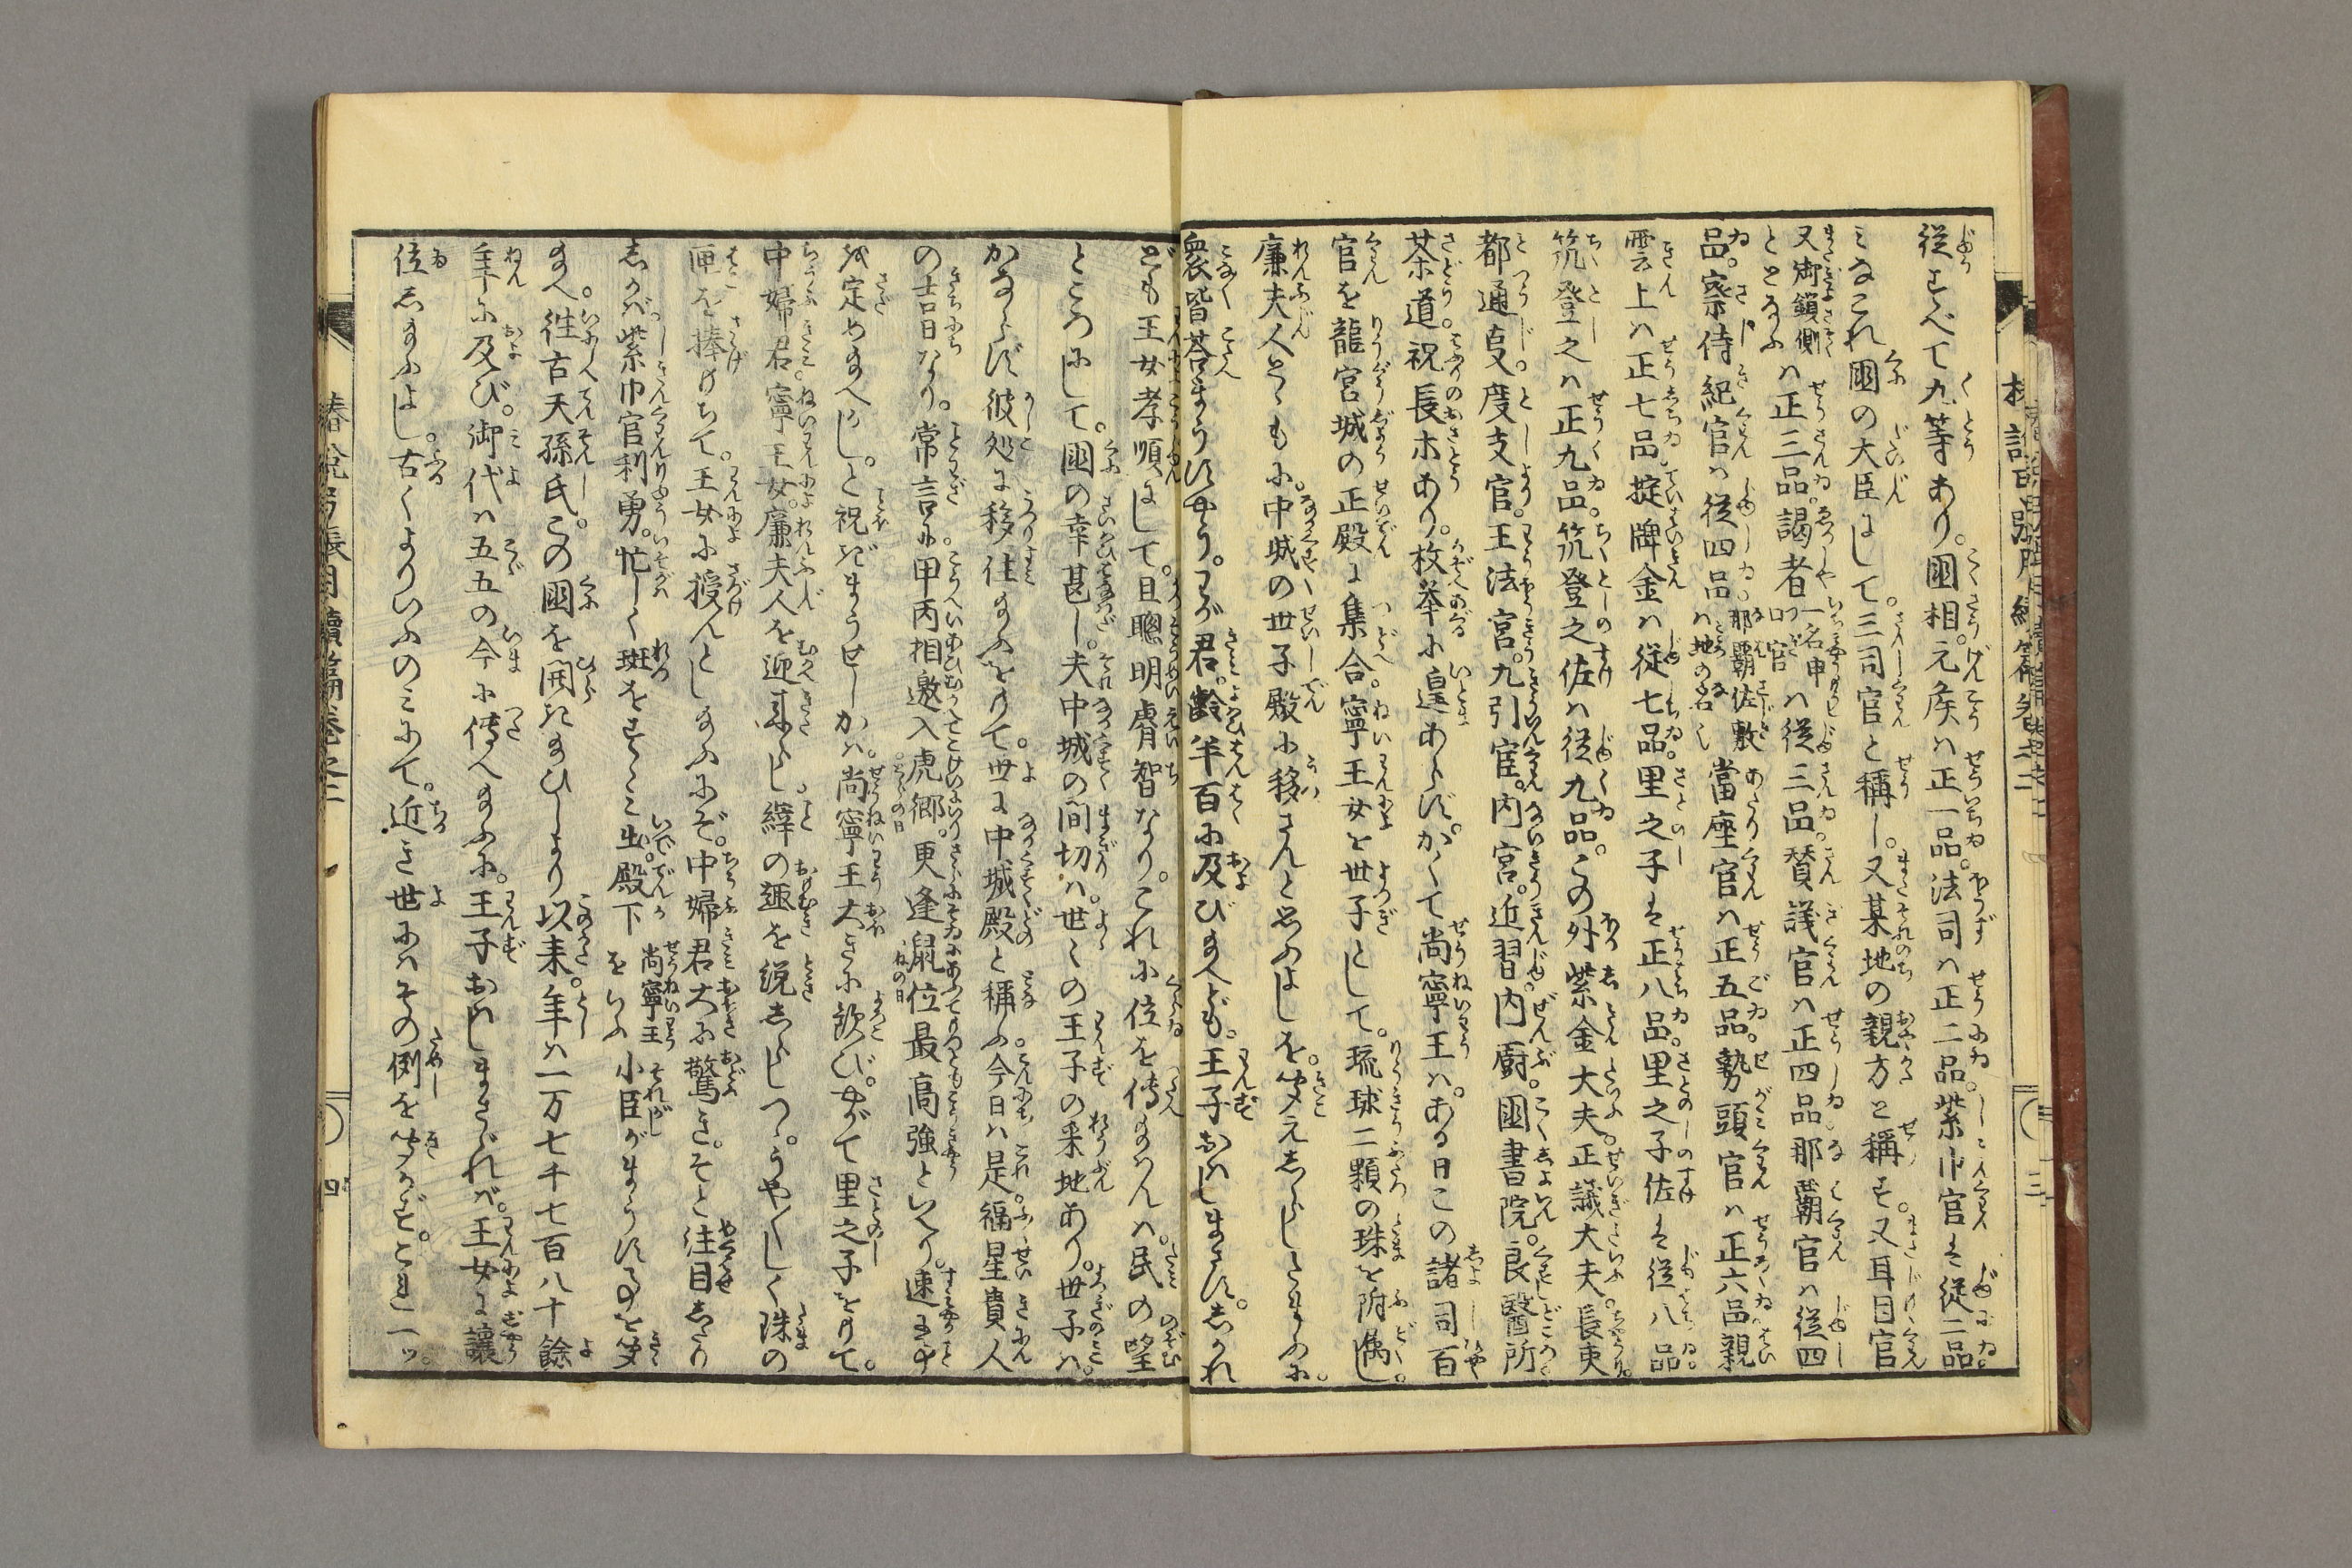 従すべて九等あり。國相。元侯ハ正一品。法司ハ正二品紫巾官は従二品
みなこれ國の大臣にして。三司官と稱し。又某地の親方と稱す。又耳目官
又御鎖側
ととなふ
ハ正三品謁者
一名申
口官
ハ従三品。賛議官ハ正四品那覇官ハ従四
品。察侍紀官ハ従四品
那覇佐敷
ハ地の名
當座官ハ正五品。勢頭官ハ正六品親
雲上ハ正七品掟牌金ハ従七品。里之子は正八品。里之子佐は従八品
筑登之ハ正九品。筑登之佐ハ従九品。この外紫金大夫。正議大夫。長吏
都通事。度支官。王法宮。九引官。内宮。近習。内厨。國書院。良醫所
茶道。祝長ホあり。枚挙に遑あらず。かくて尚寧王ハ。ある日この諸司百
官を龍宮城の正殿に集合。寧王女を世子として。琉球二顆の珠を附属し。
廉夫人もろともに。中城の世子殿に移さんと思ふよしを。聞えしらしたまふに。
衆皆答まうすやう。わが君。齢半百に及び給へども。王子おはしまさず。しかれ
ども王女孝順にして。且聰明睿智なり。これに位を傳給はんハ。民の望
ところにして。國の幸甚し。夫中城の間切ハ。世々の王子の采地あり。世子ハ。
かならず彼処に移住給ふをもて。世に中城殿と稱ふ。今日ハ是福星貴人
の吉日なり。常言に。甲丙相邀入虎郷。
とらの日
更逢鼠位最高強といへり。
ねの日
速に事
を定め給へかし。と祝ぎまうせしかば。尚寧王大きに歓び。やがて里之子をもて。
中婦君。寧王女。廉夫人を迎來らし。縡の趣を説しらしつゝ。うや〳〵しく珠の
匣を捧げもちて。王女に授んとし給ふにぞ。中婦君大に驚き。そと注目したり
しかバ紫巾官利勇。忙しく班をすゝみ出。殿下
尚寧王
をいふ
小臣がまうす事を聞
給へ。往古天孫氏。この國を開き給ひしより以来。年ハ一万七千七百八十餘
年に及び。御代ハ五五の今に傳へ給ふに。王子おはしまさざれバ。王女に讓
位し給ふよし。古くよりいふのみにて。近き世にハその例を聞かず。これ一ッ。
椿説弓張月續篇巻之二
三
四